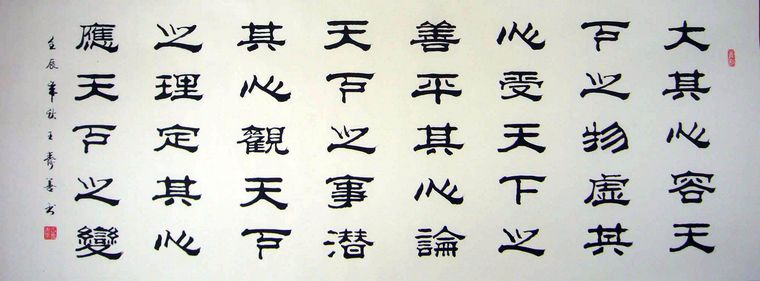 大其心容天
下之物虛其
心受天下之
善平其心論
天下之事潜
其心觀天下
之理定其心
應天下之變
壬辰年秋王善书